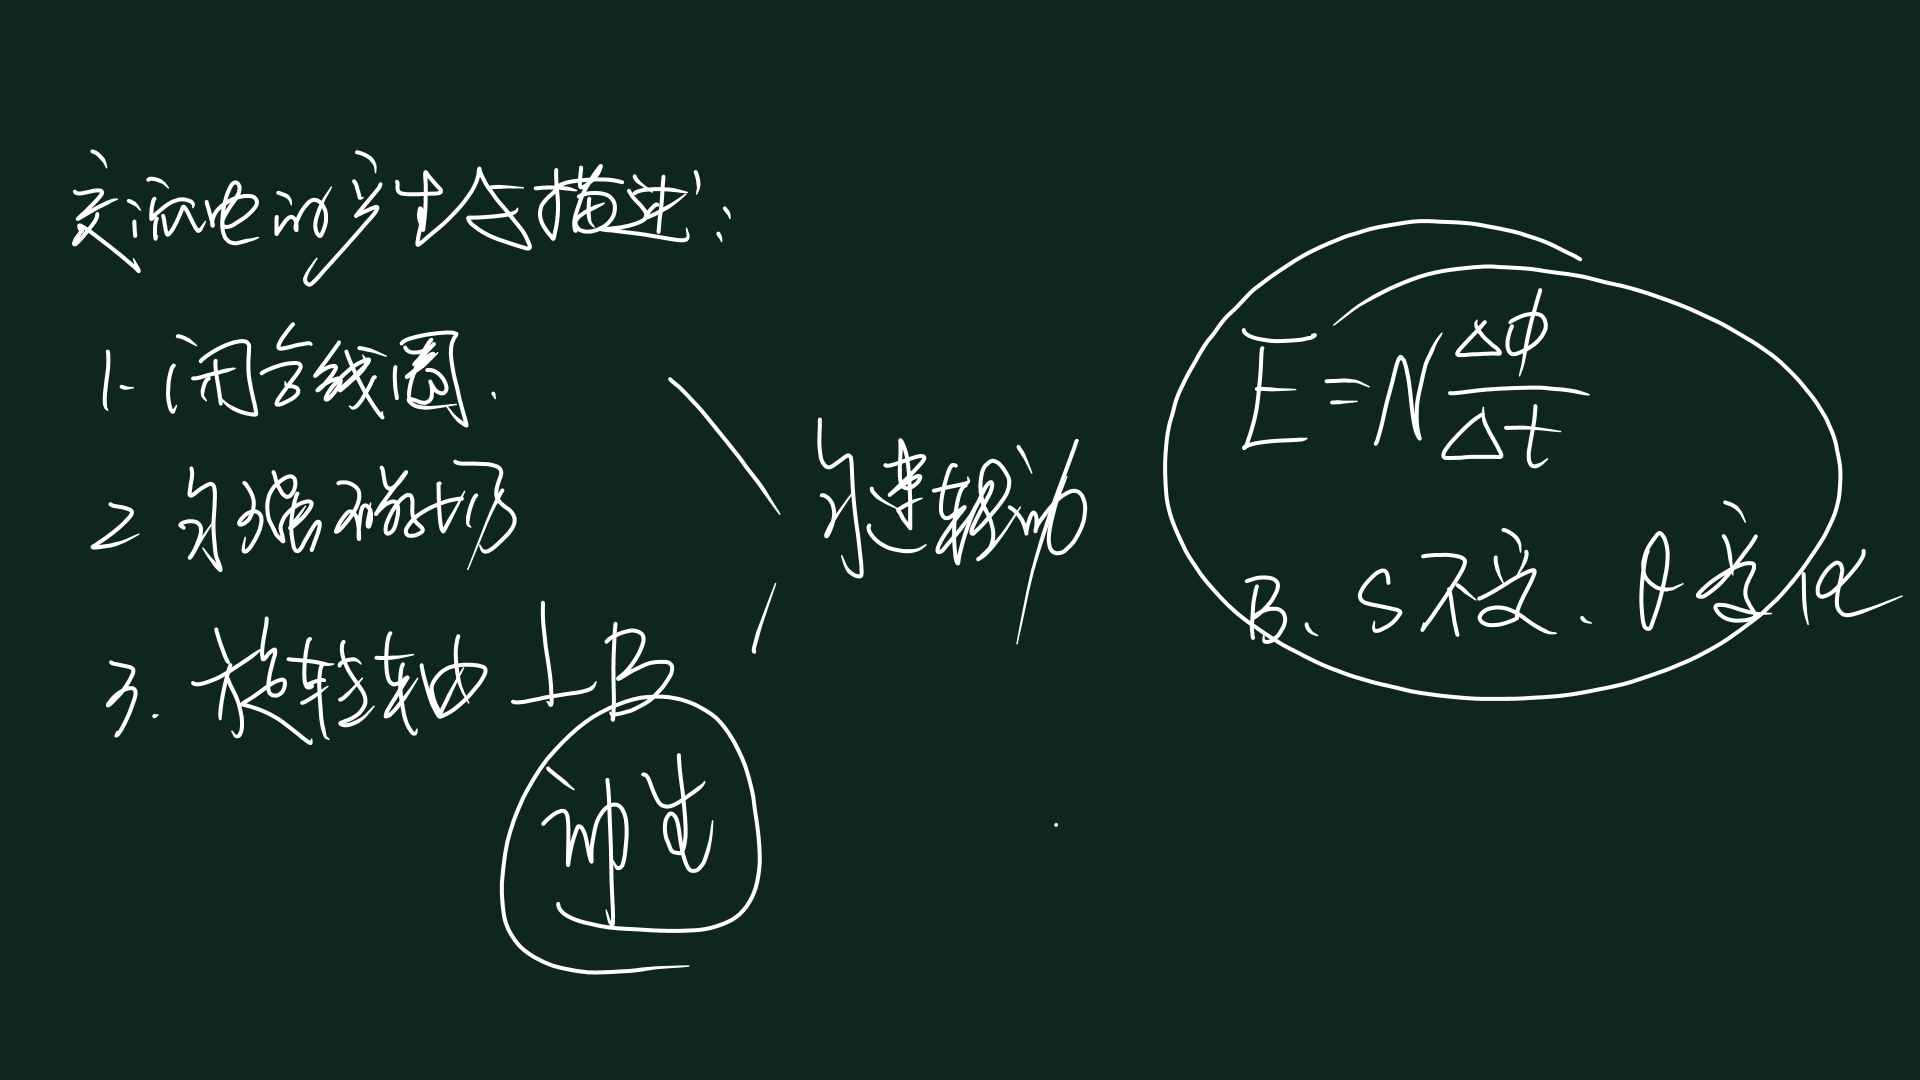 交流电的产生与描述:
1. 闭合线圈.
2 匀强磁场
3. 旋转轴⊥B
匀速转动
E=N ΔΦ/Δt
B、S不变、θ变化